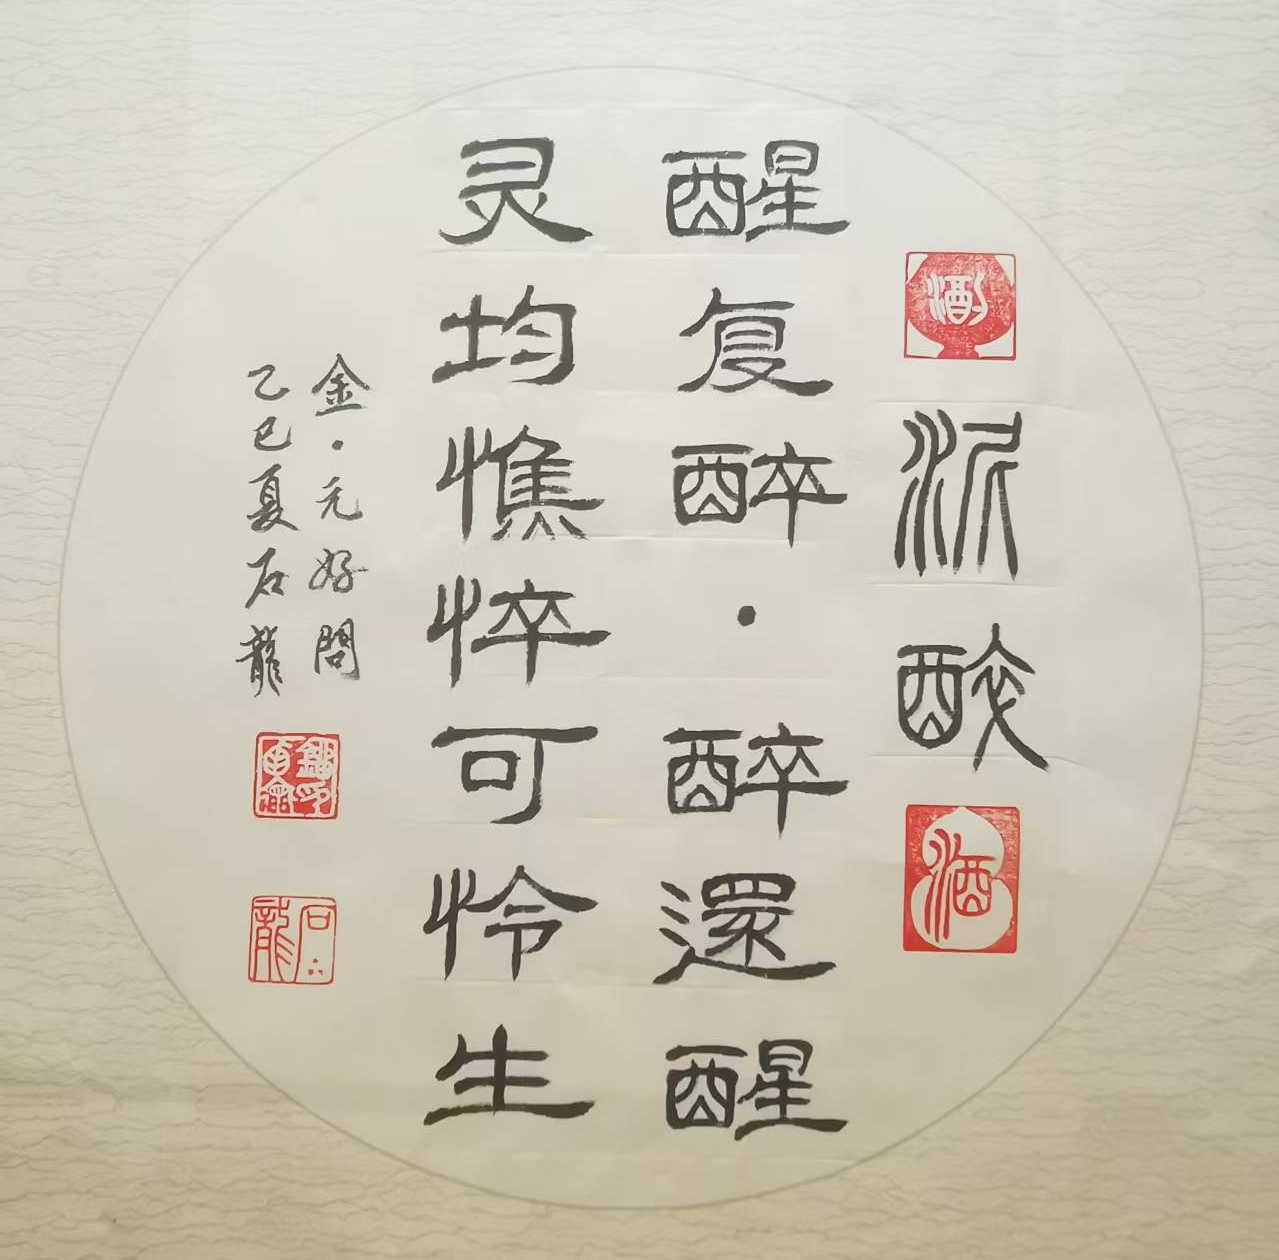 酒
醉
酒
醒复醉·醉還醒
灵均憔悴可怜生
金·元好問
乙巳夏石龍
石龍